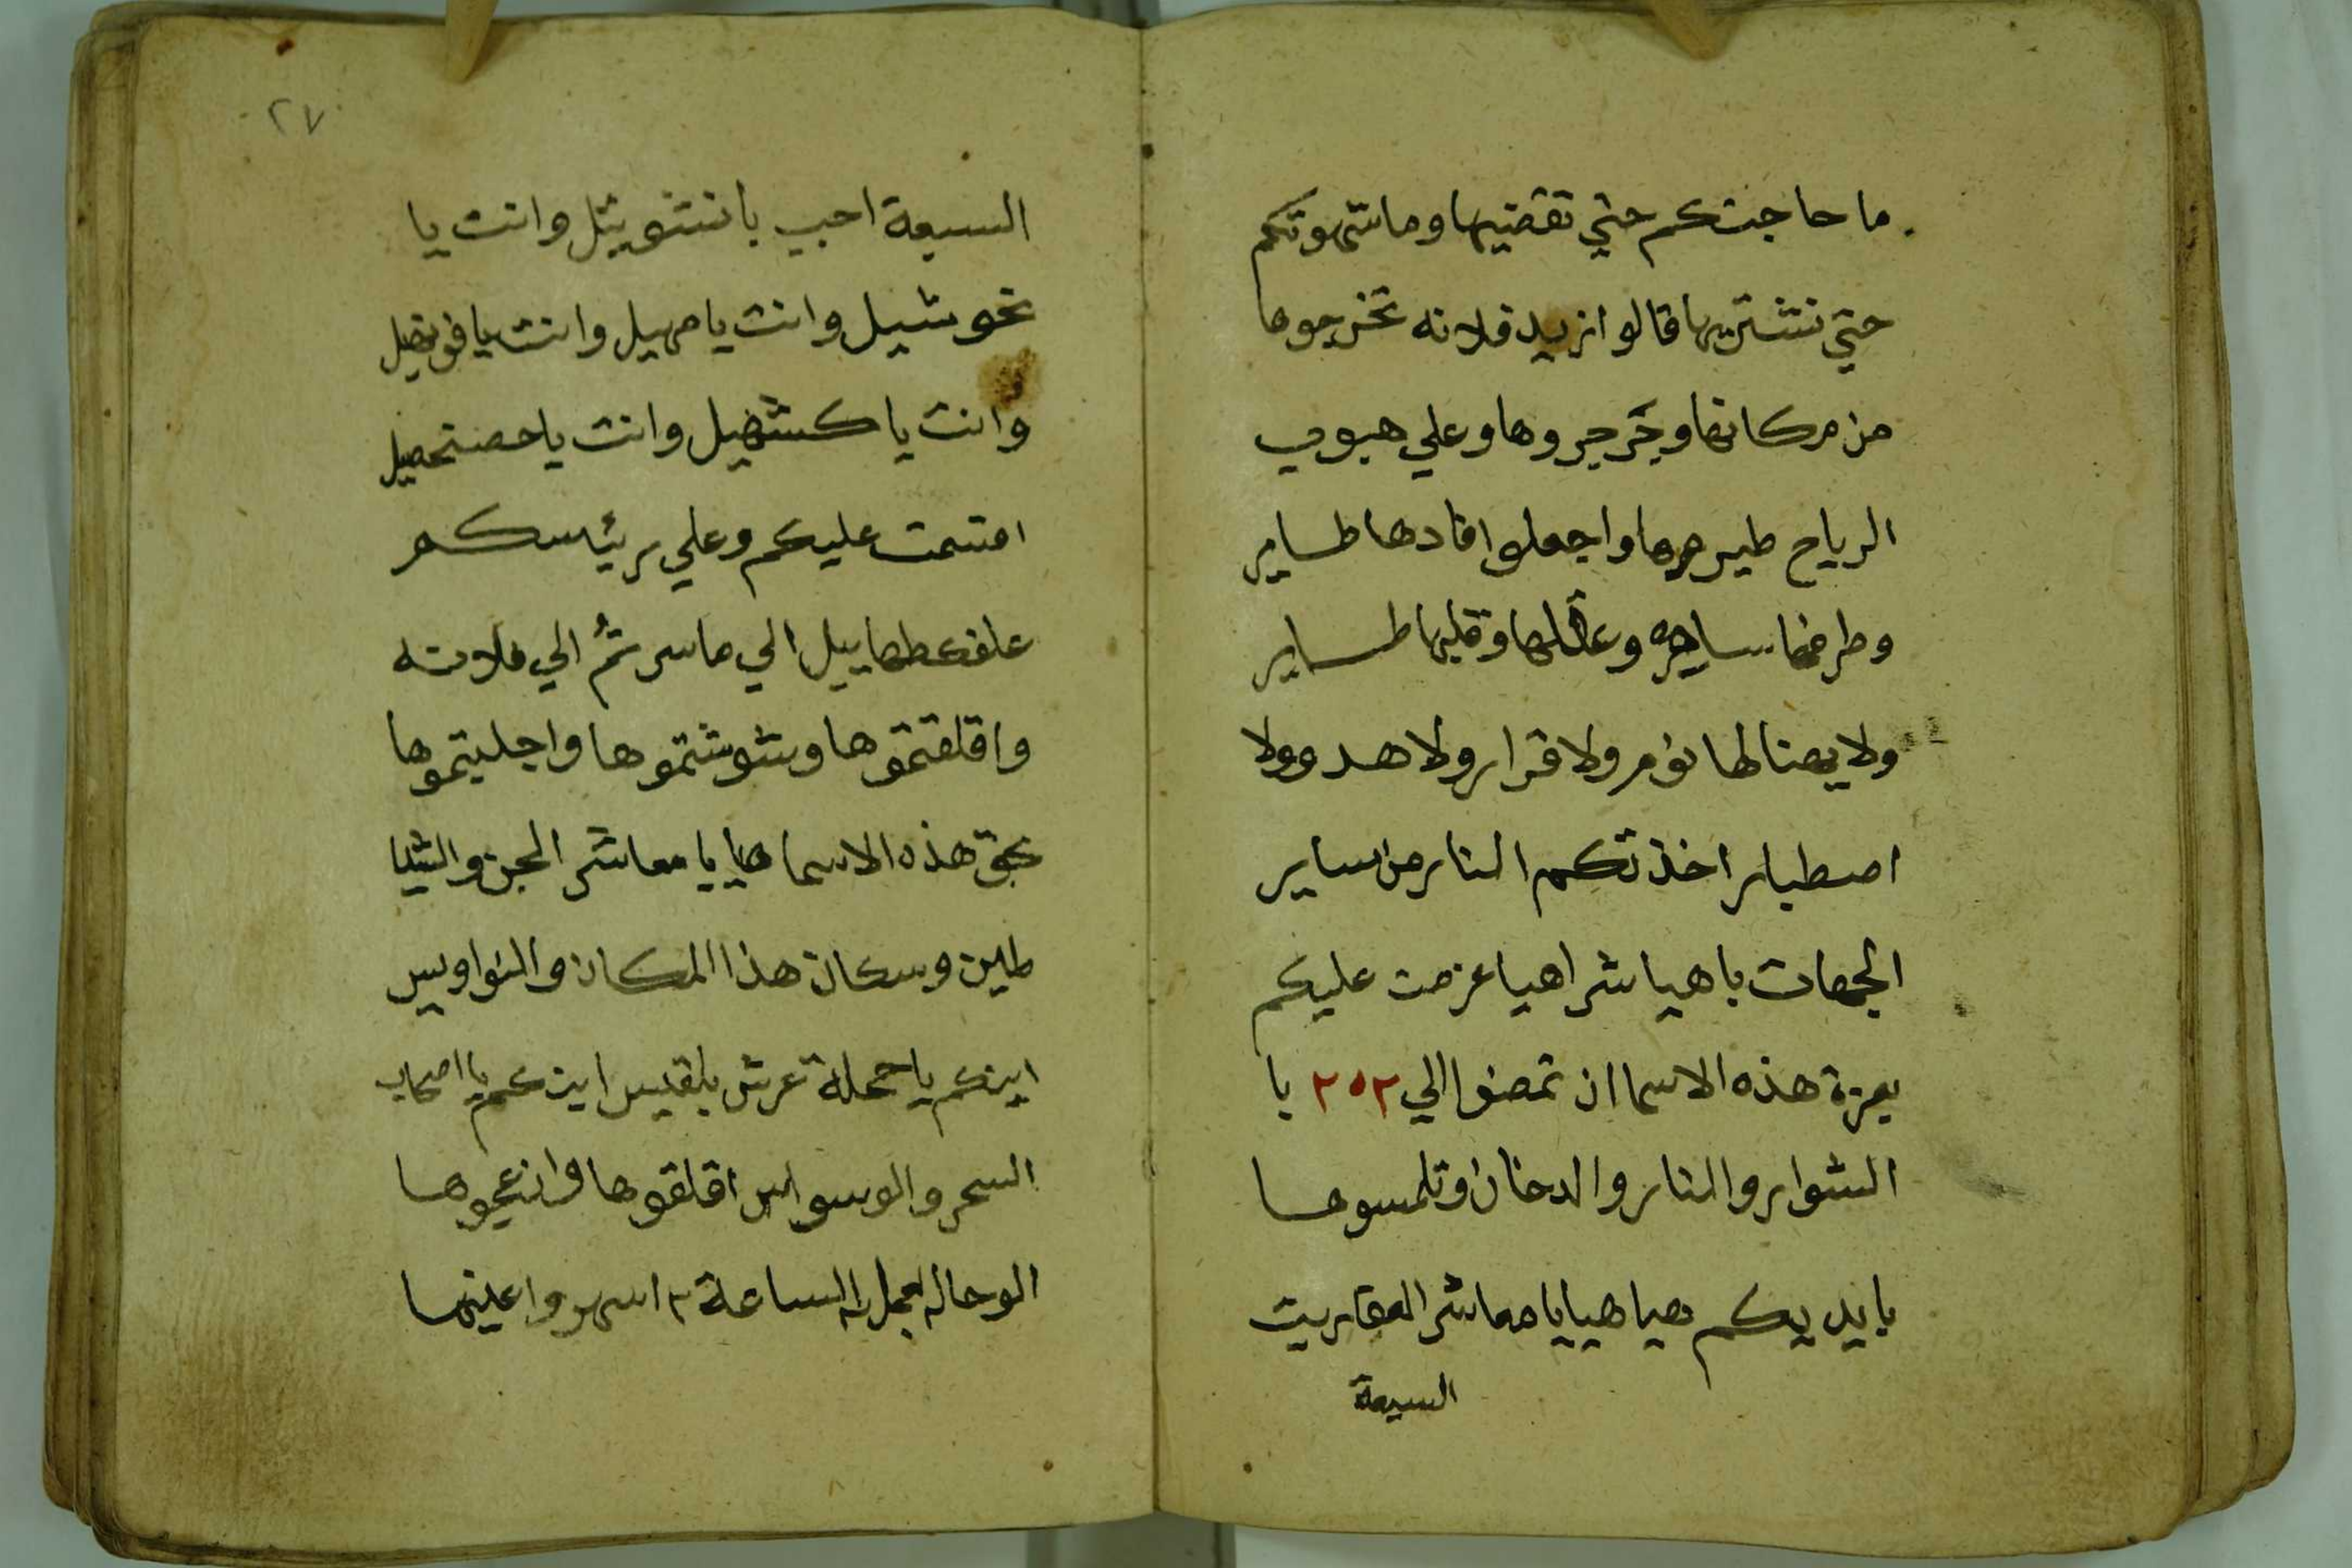 ما حاجتكم حتي نقضيها وما شهوتكم
حتي نشتريها قالوا نريد فلانه تخرجوها
من مكانها وجرجروها وعلي هبوب
الرياح طيروها واجعلوا فادها طاير
وطرفها ساهر وعقلها وقلبها طاير
ولا يهنا لها نوم ولا قرار ولا هدو ولا
اصطبار اخذتكم النار من ساير
الجهات باهيا شراهيا عزمت عليكم
بعزة هذه الاسما ان تمضوا الي ٢٥٢ با
الشوار والنار والدخان وتلمسوها
بايديكم هيا هيا يا معاشر العفاريت
السبعة
٢٧
السبعة اجب يا ننشويثل وانت يا
نحوشيل وانت يا مهيل وانت يا
وانت يا كشهيل وانت يا
اقسمت عليكم وعلي رئيسكم
الي ما سرتم الي فلانه
واقلقتموها وشوشتموها واجلبتموها
بحق هذه الاسما هيا يا معاشر الجن والشيا
طين وسكان هذا المكان والنواويس
اينكم يا حملة عرش بلقيس اينكم يا اصحاب
السحر والوسواس اقلقوها وازعجوها
الوحا العجل الساعة ٢ اسهروا عينها